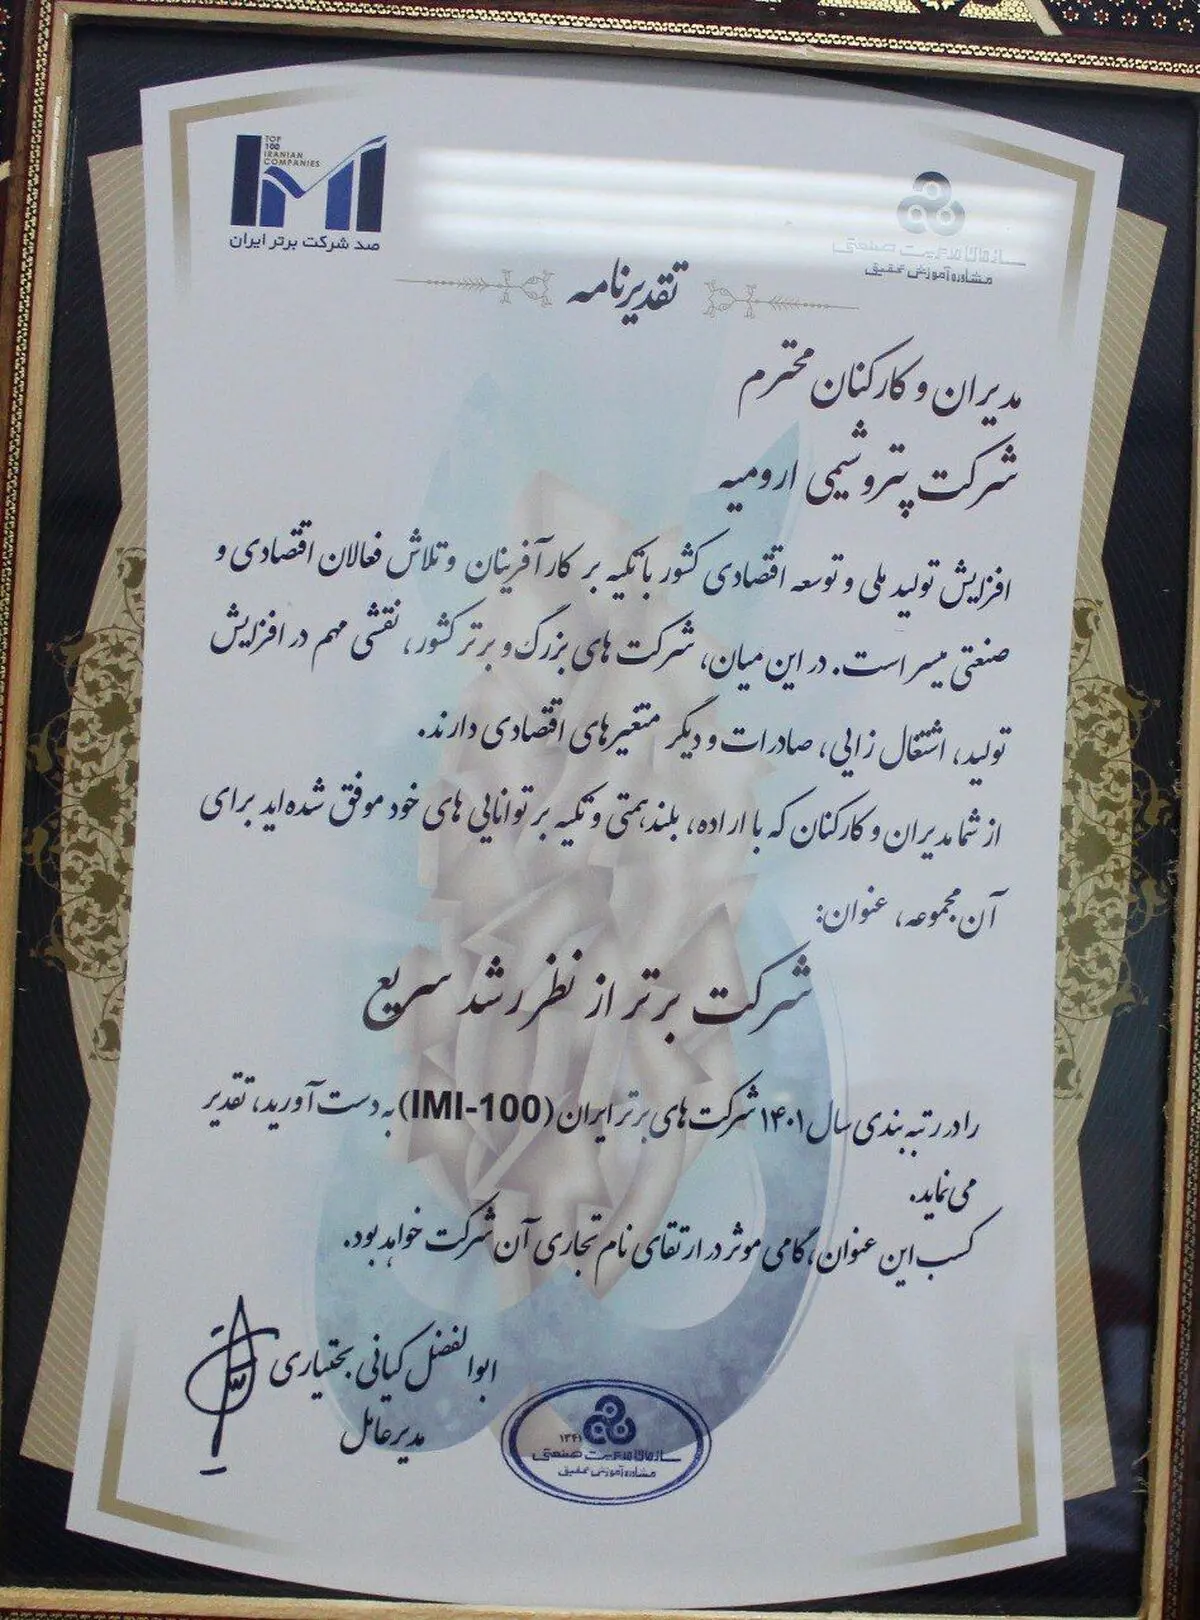 TOP
100
IRANIAN
COMPANIES
صد شرکت برتر ایران
سازمان مدیریت صنعتی
مشاوره آموزش تحقیق
تقدیرنامه
مدیران و کارکنان محترم
شرکت پتروشیمی ارومیه
افزایش تولید ملی و توسعه اقتصادی کشور با تکیه بر کارآفرینان و تلاش فعالان اقتصادی و
صنعتی میسر است. در این میان، شرکت های بزرگ و برتر کشور، نقشی مهم در افزایش
تولید، اشتغال زایی، صادرات و دیگر متغیرهای اقتصادی دارند.
از شما مدیران و کارکنان که با اراده، بلندهمتی و تکیه بر توانایی های خود موفق شده اید برای
آن مجموعه، عنوان:
شرکت برتر از نظر رشد سریع
را در رتبه بندی سال ۱۴۰۱ شرکت های برتر ایران (IMI-100) به دست آورید، تقدیر
می نماید.
کسب این عنوان، گامی موثر در ارتقای نام تجاری آن شرکت خواهد بود.
ابوالفضل کیانی بختیاری
مدیرعامل
۱۳۴۱
سازمان مدیریت صنعتی
مشاوره آموزش تحقیق